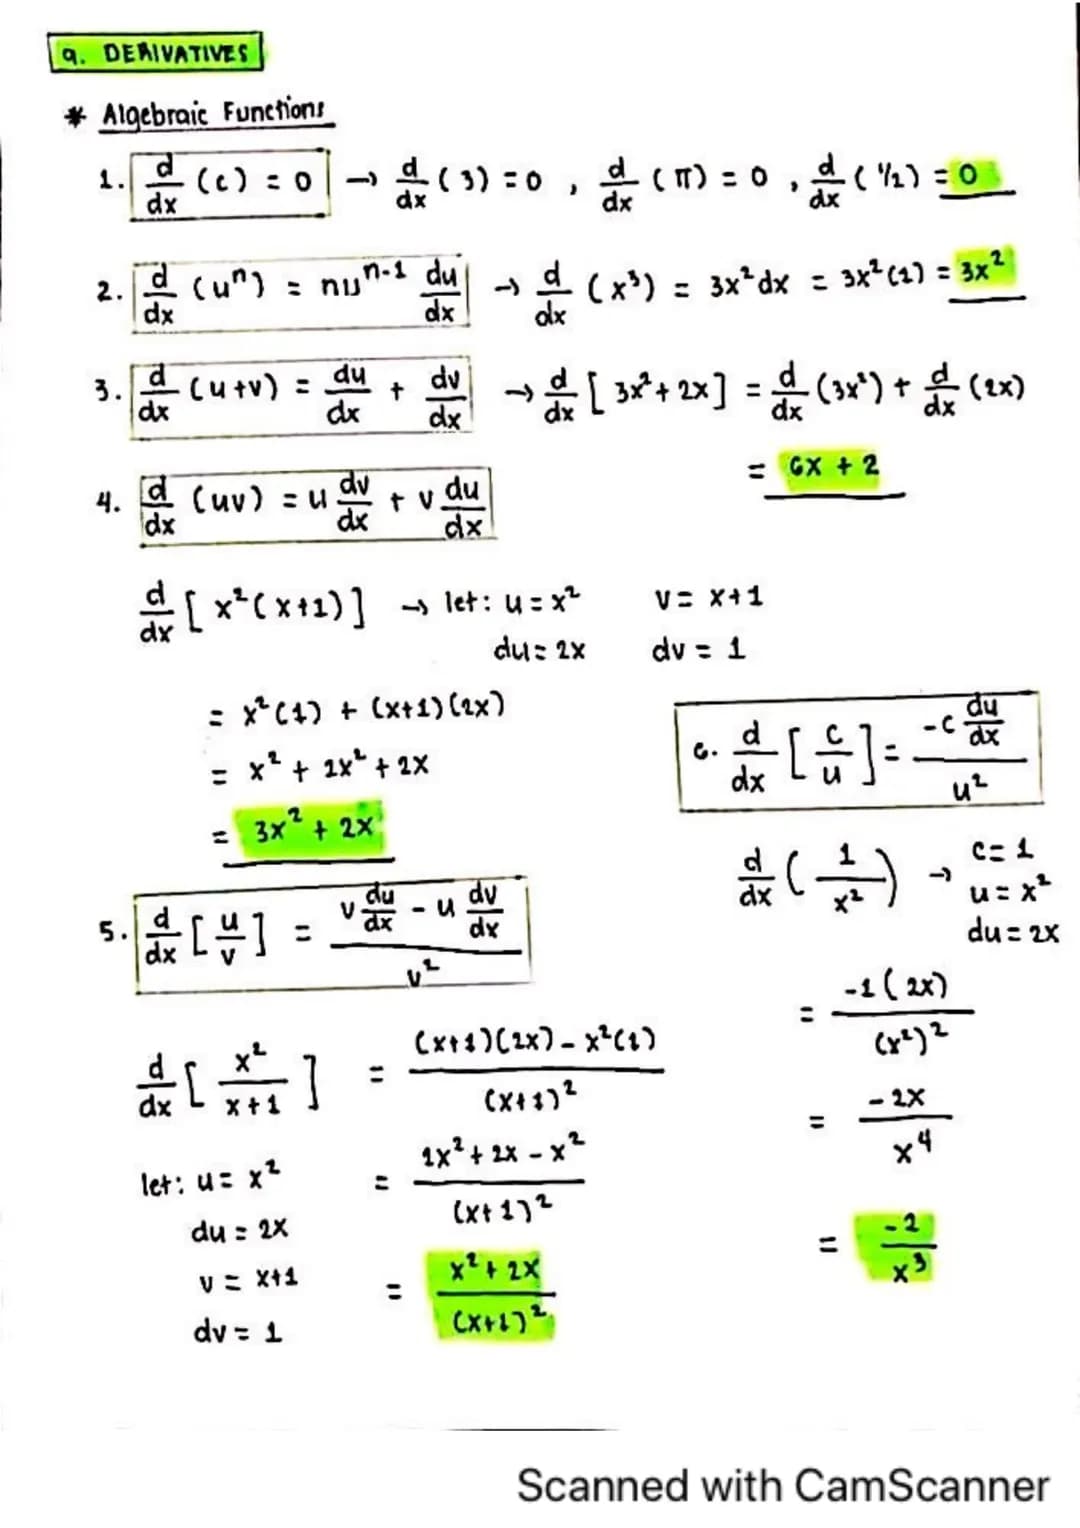 9. DERIVATIVES
* Algebraic Functions
1. d/dx (c) = 0 → d/dx (3) = 0 , d/dx (π) = 0 , d/dx (1/2) = 0
2. d/dx (uⁿ) = nuⁿ⁻¹ du/dx → d/dx (x³) = 3x² dx = 3x² (1) = 3x²
3. d/dx (u+v) = du/dx + dv/dx → d/dx [ 3x² + 2x ] = d/dx (3x²) + d/dx (2x)
= 6x + 2
4. d/dx (uv) = u dv/dx + v du/dx
d/dx [ x² (x+1) ] → let: u = x² v = x+1
du = 2x dv = 1
= x² (1) + (x+1) (2x)
= x² + 2x² + 2x
= 3x² + 2x
5. d/dx [ u/v ] = (v du/dx - u dv/dx) / v²
d/dx [ x² / (x+1) ] = ((x+1)(2x) - x²(1)) / (x+1)²
let: u = x²
= (2x² + 2x - x²) / (x+1)²
du = 2x
v = x+1
= (x² + 2x) / (x+1)²
dv = 1
6. d/dx [ c/u ] = (-c du/dx) / u²
d/dx ( 1/x² ) → c = 1
u = x²
du = 2x
= -1 (2x) / (x²)²
= -2x / x⁴
= -2 / x³
Scanned with CamScanner